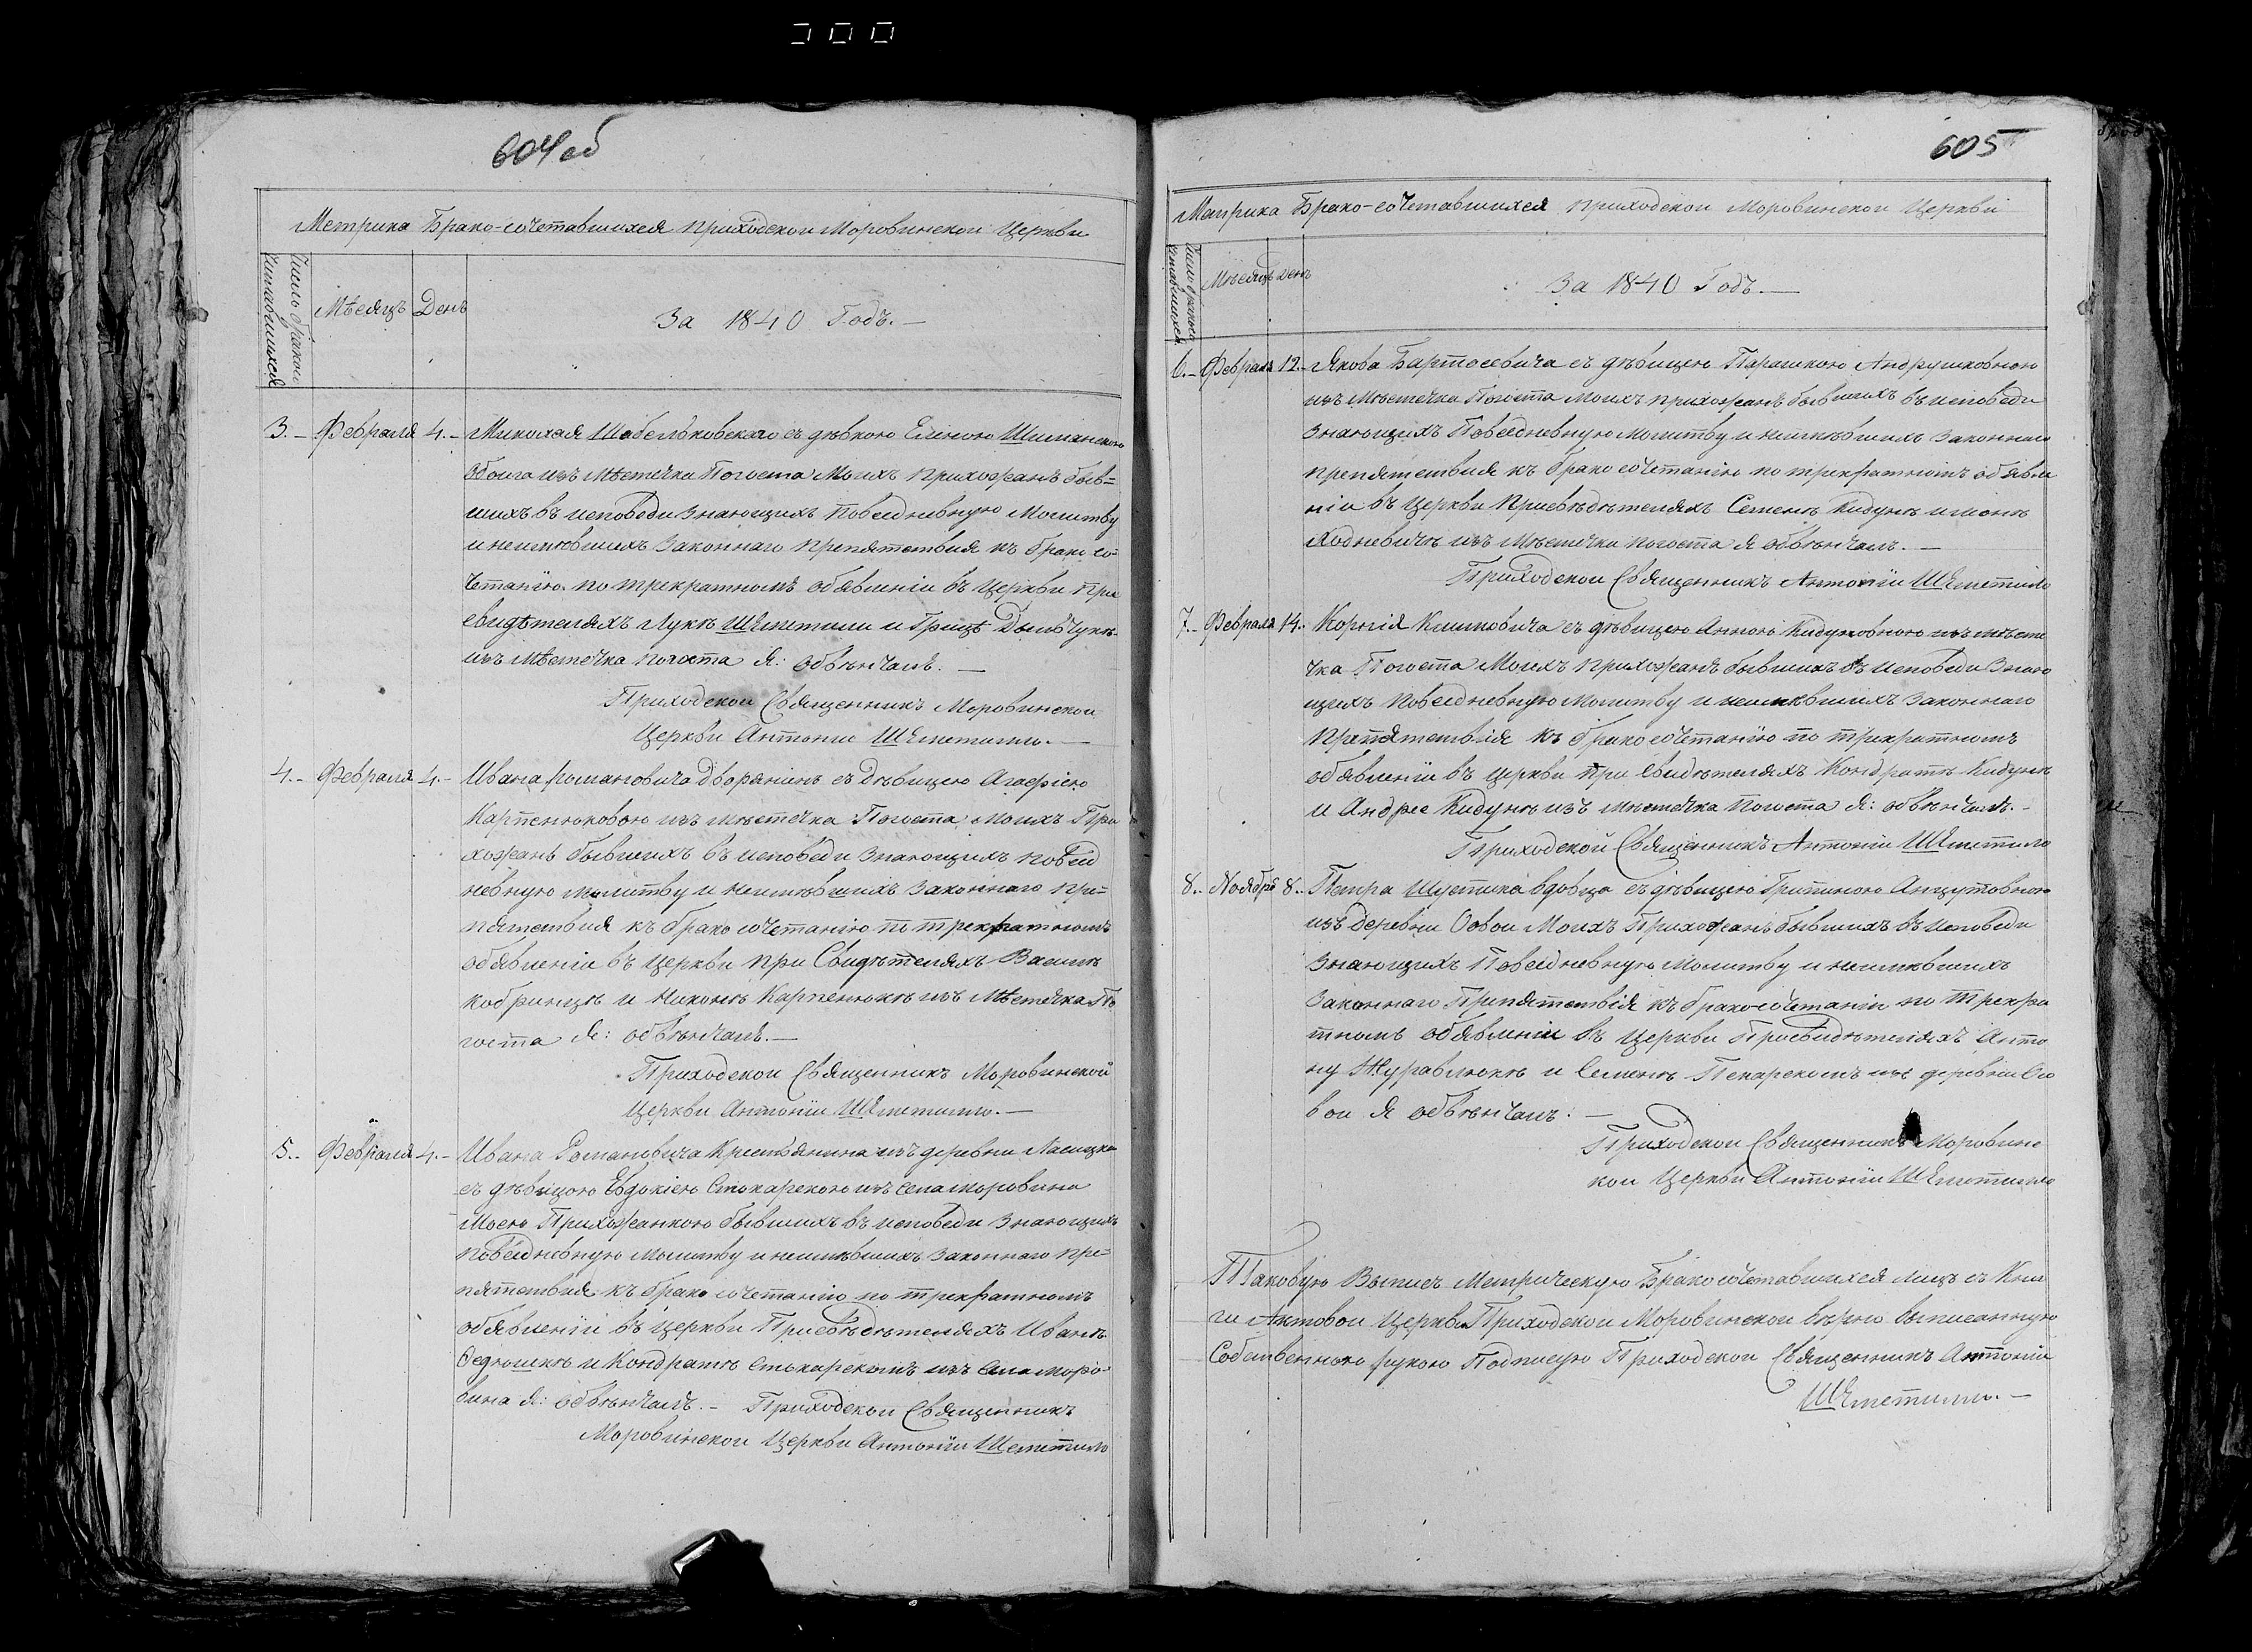 604 об
Метрика Брако-сочетавшихся приходской Моровинской Церкви
Число браковъ
читавшихся
Мѣсяцъ День
За 1840 Годъ. —
3. – Февраля 4. – Миколая Шабельковскаго съ дѣвкою Еленою Шиманскою
обоига изъ Мѣстечка Погоста Моихъ Прихожанъ быв=
шихъ въ исповеди знающихъ Повседневную Молитву
и неимѣвшихъ Законнаго Препятствия къ брако со=
четанію по трекратномъ объявленіи въ Церкви При
свидѣтеляхъ Лукѣ Шеметили и Грицѣ
изъ Мѣстечка погоста Я: обвѣнчалъ. —
Приходской Священникъ Моровинской
Церкви Антоній Шеметилло. —
4. – Февраля 4. – Ивана романовича дворянинъ съ Дѣвицею Агафіею
Карпенюковою изъ мѣстечка Погоста Моихъ При
хожанъ бывшихъ въ исповеди знающихъ повсед
невную молитву и неимѣвшихъ Законнаго пре=
пятствия къ брако сочетанію по трекратномъ
объявленіи въ Церкви при Свидѣтеляхъ Василѣ
кобринцѣ и Никонѣ Карпенюкѣ изъ Мѣстечка По
госта Я: обвѣнчалъ. —
Приходской Священникъ Моровинской
Церкви Антоній Шеметилло. —
5. – Февраля 4. – Ивана Романовича Крестьянина изъ деревни Ласицка
съ дѣвицою Евдокіею Столкарскою изъ Села Моровина
Моею Прихожанкою бывшихъ въ исповеди Знающихъ
повседневную молитву и неимѣвшихъ Законнаго пре=
пятствия къ брако сочетанію по трекратномъ
объявленіи въ Церкви При свѣдѣтеляхъ Иванѣ
Федюшкѣ и Кондратѣ изъ Села Моро
вина Я: обвѣнчалъ. – Приходской Священникъ
Моровинской Церкви Антоній Шеметило
605
Матрика Брако-сочетавшихся приходской Моровинской Церкви
Число браковъ
четавшихся
Мѣсяцъ день
За 1840 Годъ. —
6. – Февраля 12. – Якова Бартосевича съ дѣвицею Парашкою Андрушковною
изъ Мѣстечка Погоста моихъ прихожанъ бывшихъ въ исповеди
Знающихъ Повседневную молитву и неимѣвшихъ Законнаго
препятствия къ брако сочетанію по трекратномъ объявле
ніи въ Церкви При свѣдѣтеляхъ Семенѣ Кидунѣ и
Ходневичѣ изъ Мѣстечка погоста Я обвѣнчалъ. —
Приходской Священникъ Антоній Шеметило
7. – Февраля 14. Корнія Климовича съ дѣвицею Анною Кидуновною изъ мѣсте
чка Погоста Моихъ прихожанъ бывшихъ въ исповеди Знаю
щихъ повседневную молитву и неимѣвшихъ Законнаго
Препятствія къ брако сочетанію по трекратномъ
объявленіи въ Церкви при Свидѣтеляхъ Кондратѣ Кидунѣ
и Андрее Кидунѣ изъ мѣстечка погоста Я: обвѣнчалъ. –
Приходской Священникъ Антоній Шеметило
8. – Ноября 8. – Петра Шустика вдовца съ дѣвицею Грипиною Анцутовною
изъ деревни Осовои Моихъ Прихожанъ бывшихъ въ исповеди
Знающихъ Повседневную Молитву и неимѣвшихъ
Законнаго Препятствія къ брако-сочетаніи по трекра
тномъ объявленіи въ Церкви При свидѣтеляхъ Анто
ну Журавлюкѣ и Семенѣ Пекарскомъ изъ деревни Осо
вои Я обвѣнчалъ. —
Приходской Священникъ Моровинс
кои Церкви Антоній Шеметилло
Таковую Выпись Метрическую Брако сочетавшихся лицъ съ Кни
ги Актовои Церкви Приходской Моровинской вѣрно выписанную
Собственною рукою Подписую Приходской Священникъ Антоній
Шеметилло. —